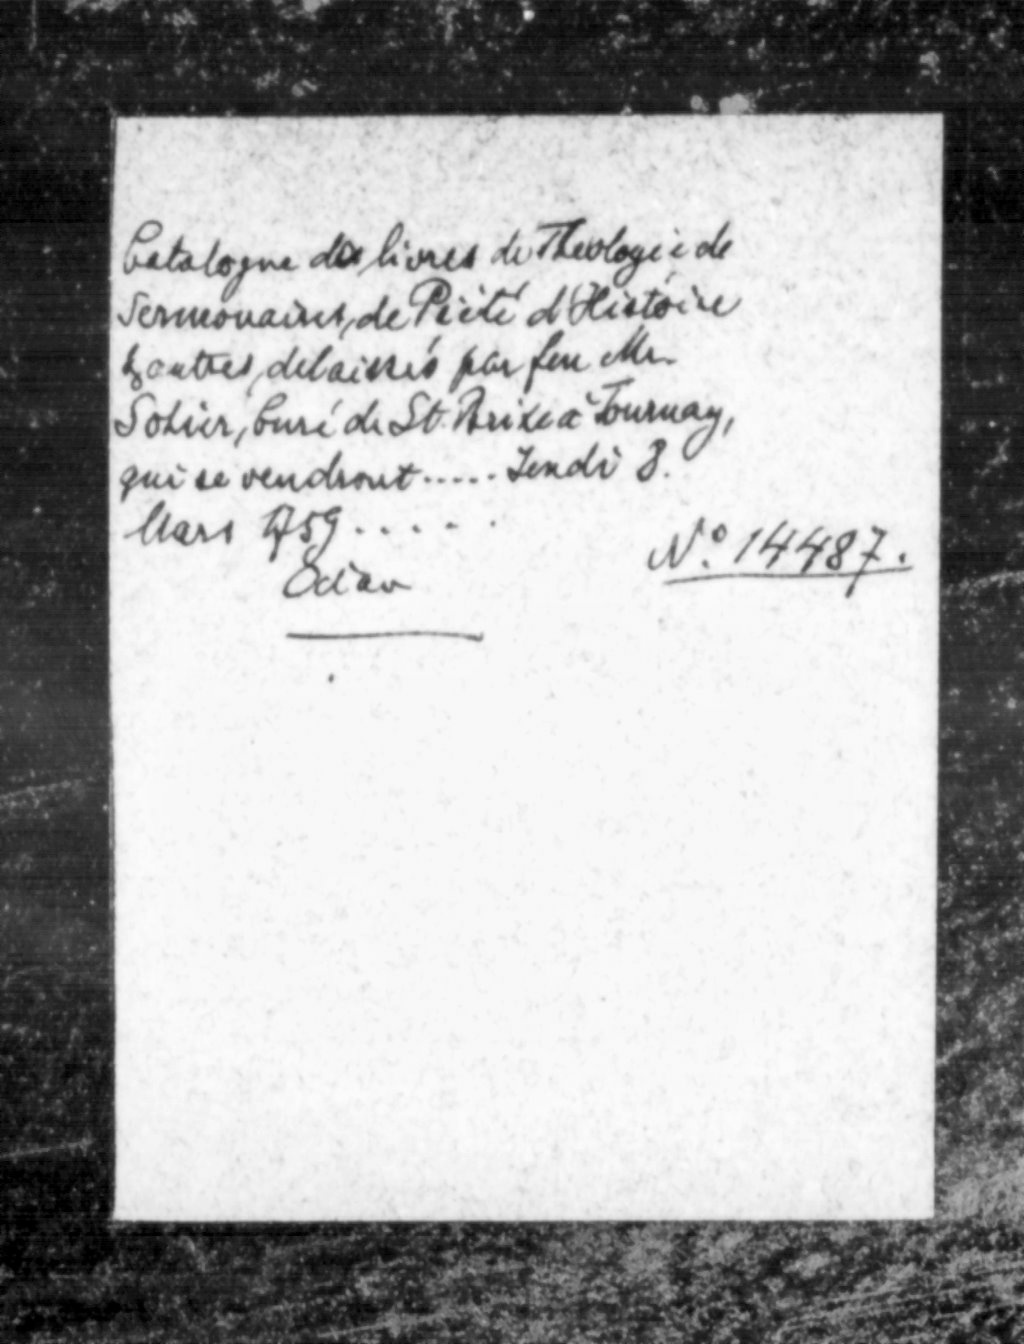 Catalogue des livres de Theologie de
Sermonaires, de Piété d'Histoire
& autres, delaissés par feu Mr.
Sohier, Curé de St. Brixe a Tournay,
qui se vendront ..... Jeudi 8.
Mars 1759 .....
N.º 14487.